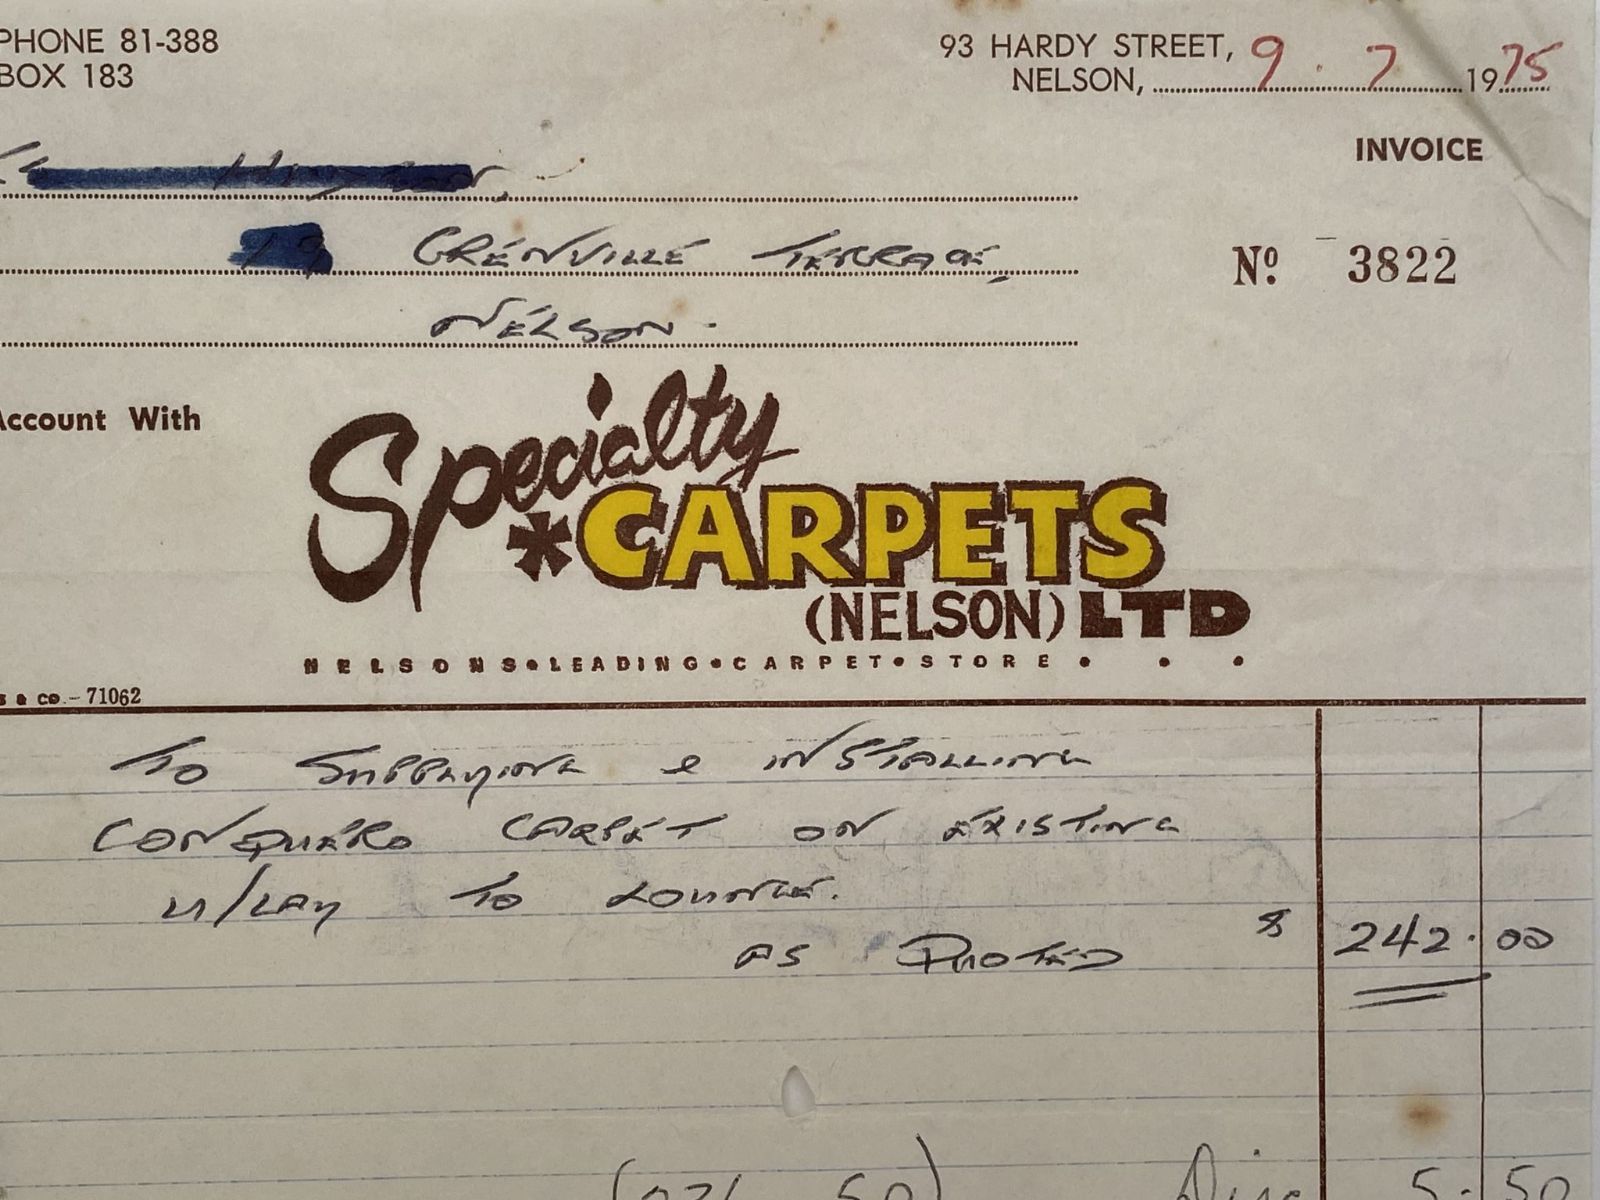 PHONE 81-388
BOX 183
93 HARDY STREET,
NELSON, 9 . 7 1975
INVOICE
GRENVILLE TERRACE,
Nº 3822
NELSON.
Account With
Specialty
*CARPETS
(NELSON) LTD
NELSONS•LEADING•CARPET•STORE• • •
& CO.-71062
TO SUPPLYING & INSTALLING
CONQUERO CARPET ON EXISTING
U/LAY TO LOUNGE.
AS QUOTED $ 242.00
Disc 5.50